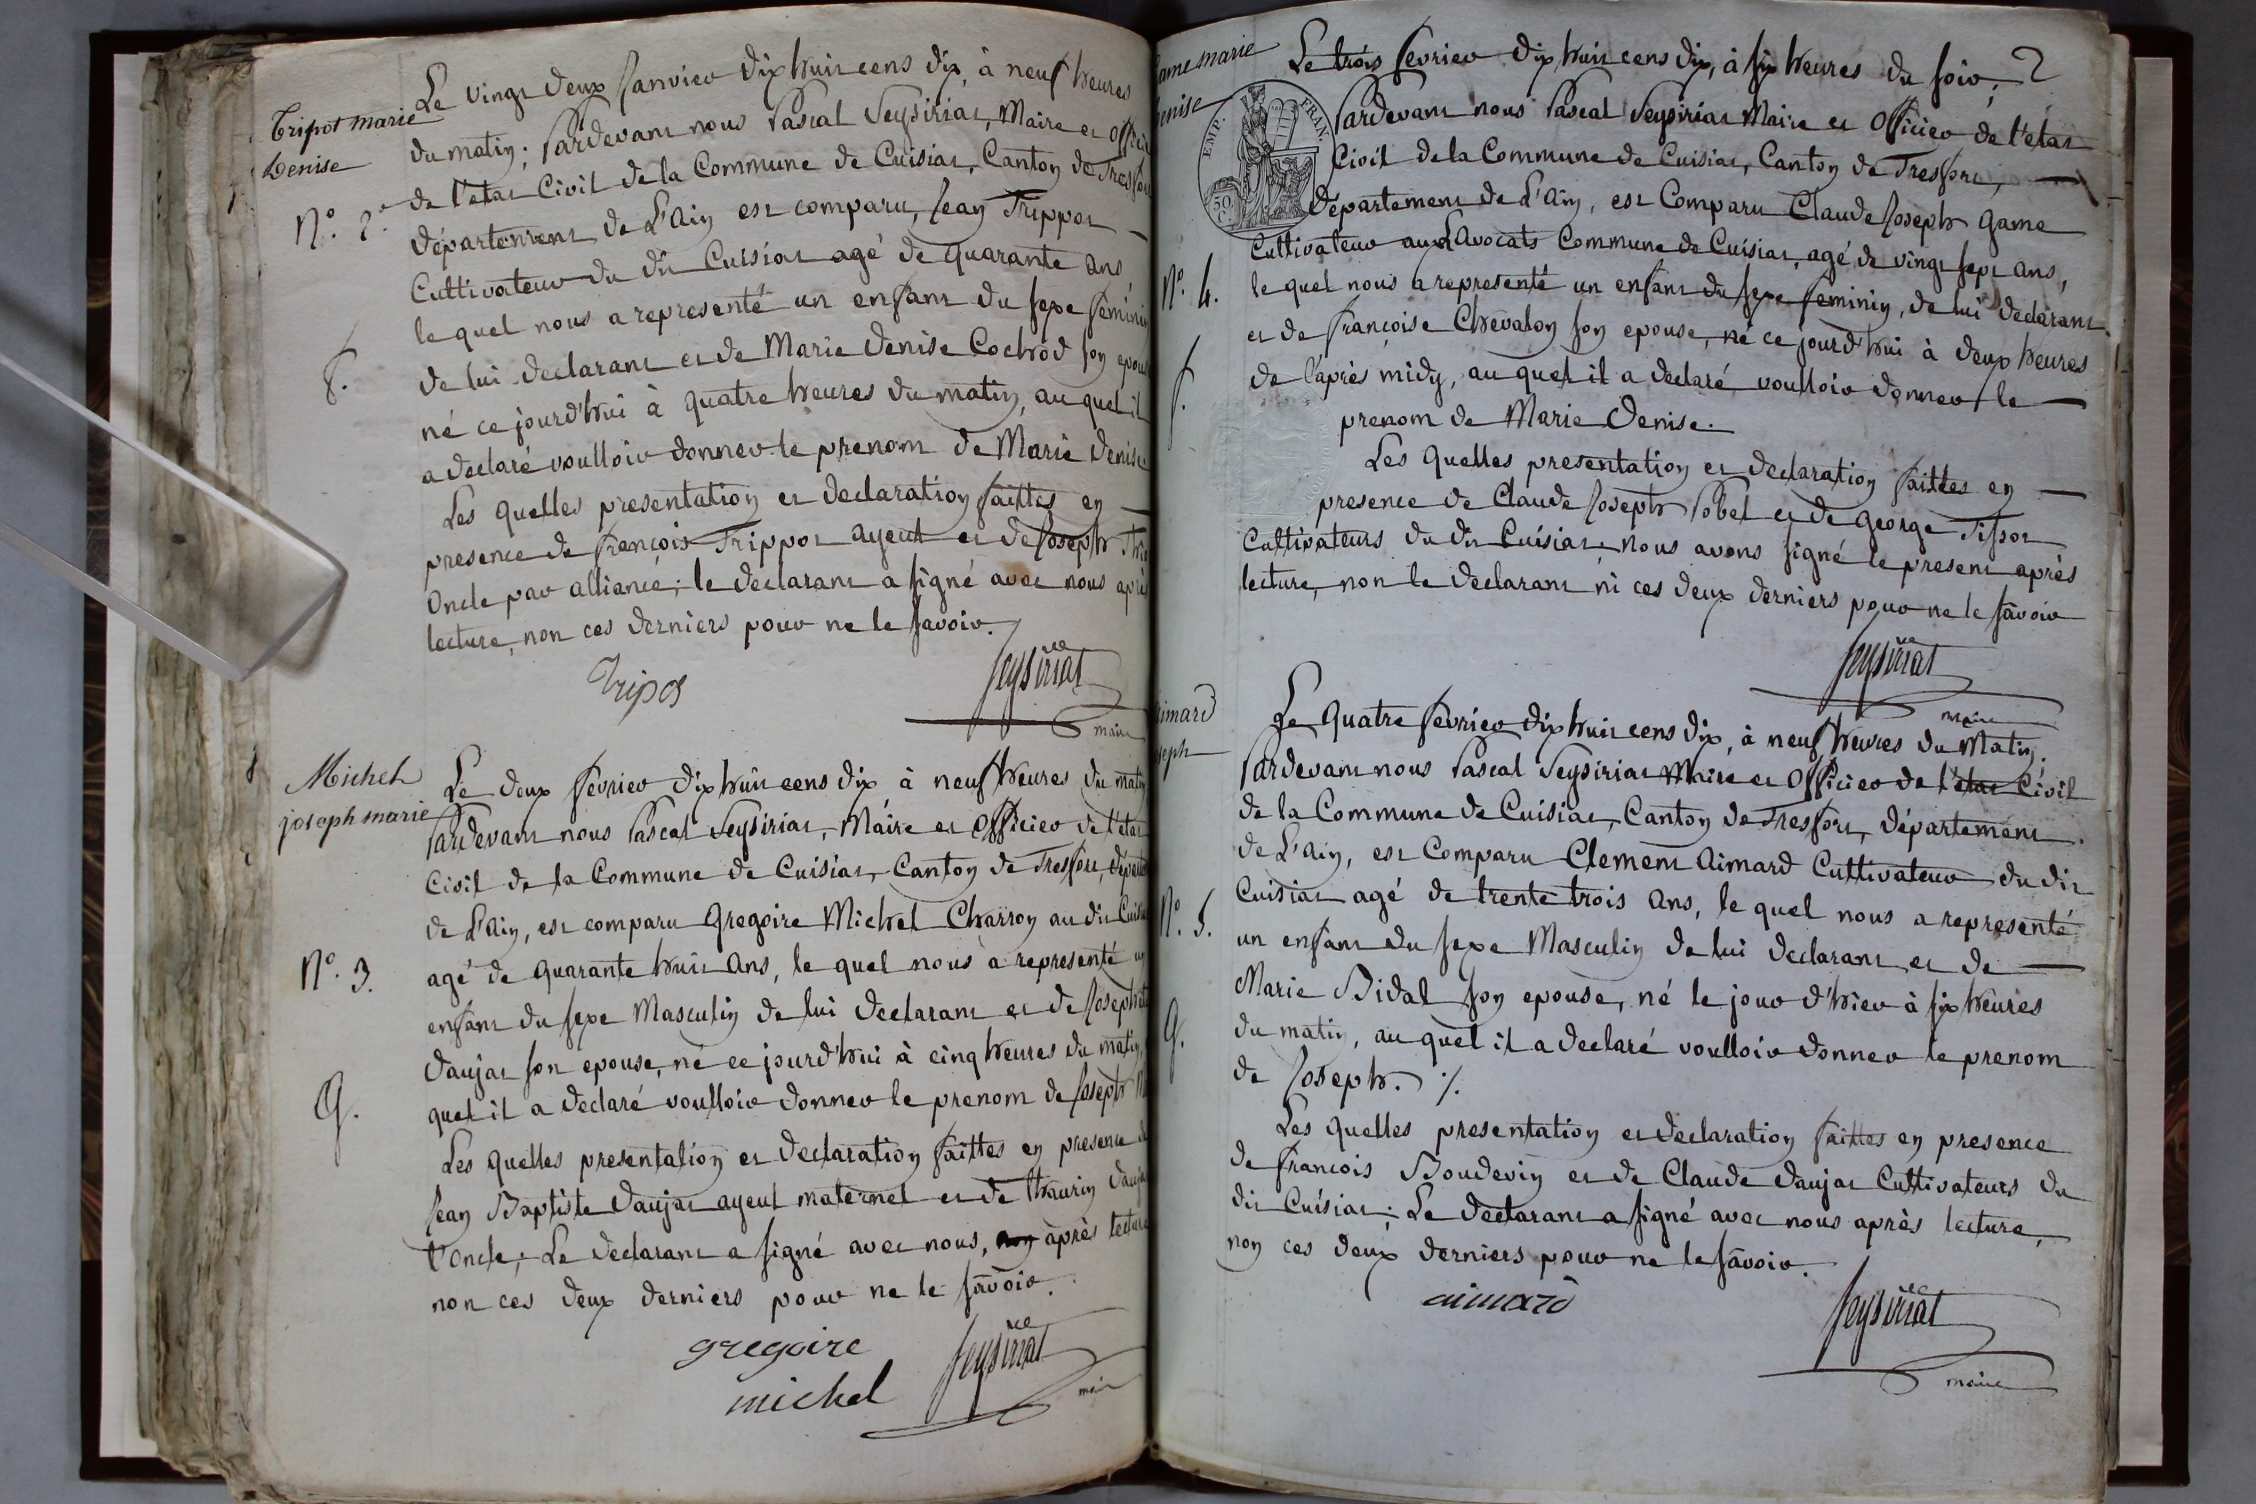 Tripot marie
Denise
N.° 2.
f.
Le vingt deux Janvier dix huit cens dix, à neuf heures
du matin; Pardevant nous Pascal Seysiriat, Maire et
de l'etat Civil de la Commune de Cuisiat, Canton de
département de L'ain est comparu, Jean Trippot
Cultivateur du dit Cuisiat agé de quarante ans
le quel nous a representé un enfant du sexe
de lui declarant et de Marie Denise Cochod son
né ce jourd'hui à quatre heures du matin, au quel il
a declaré voulloir donner le prenom de Marie Denise
Les quelles presentation et declaration faittes en
presence de françois Trippot ayeul et de Joseph
Oncle par alliance; le declarant a signé avec nous
lecture, non ces derniers pour ne le savoir.
Tripot
Seysiriat
maire
Michel
joseph marie
N.° 3.
G.
Le deux fevrier dix huit cens dix à neuf heures du
Pardevant nous Pascal Seysiriat, Maire et Officier de l'etat
Civil de la Commune de Cuisiat, Canton de Treffort,
de L'ain, est comparu Gregoire Michel Charron au dit
agé de quarante huit ans, le quel nous a representé
enfant du sexe Masculin de lui declarant et de
Daujat son epouse, né ce jourd'hui à cinq heures du matin,
quel il a declaré voulloir donner le prenom de Joseph
Les quelles presentation et declaration faittes en presence
Jean Baptiste Daujat ayeul maternel et de thaurin
l'Oncle; Le declarant a signé avec nous, après
non ces deux derniers pour ne le savoir.
gregoire
michel
Seysiriat
game marie
denise
N.° 4.
f.
EMP. FRAN.
50 C.
2
Le trois fevrier dix huit cens dix, à six heures du soir;
Pardevant nous Pascal Seysiriat Maire et Officier de l'etat
Civil de la Commune de Cuisiat, Canton de Treffort,
département de L'ain, est Comparu Claude Joseph game
Cultivateur aux Lavocats Commune de Cuisiat, agé de vingt sept ans,
le quel nous a representé un enfant du sexe feminin, de lui declarant
et de françoise Chevalon son epouse, né ce jourd'hui à deux heures
de l'après midy, au quel il a declaré voulloir donner le
prenom de Marie Denise.
Les quelles presentation et declaration faittes en
presence de Claude Joseph Pobel et de george Tissot
Cultivateurs du dit Cuisiat, nous avons signé le present après
lecture, non le declarant ni ces deux derniers pour ne le savoir
Seysiriat
maire
aimard
joseph
N.° 5.
g.
Le quatre fevrier dix huit cens dix, à neuf heures du Matin;
Pardevant nous Pascal Seysiriat Maire et Officier de l'etat Civil
de la Commune de Cuisiat, Canton de Treffort, département
de L'ain, est Comparu Clement Aimard Cultivateur du dit
Cuisiat agé de trente trois ans, le quel nous a representé
un enfant du sexe Masculin de lui declarant et de
Marie Bidal son epouse, né le jour d'hier à six heures
du matin, au quel il a declaré voulloir donner le prenom
de Joseph. ./.
Les quelles presentation et declaration faittes en presence
de francois Boudevin et de Claude Daujat Cultivateurs du
dit Cuisiat; Le declarant a signé avec nous après lecture,
non ces deux derniers pour ne le savoir.
aimard
Seysiriat
maire